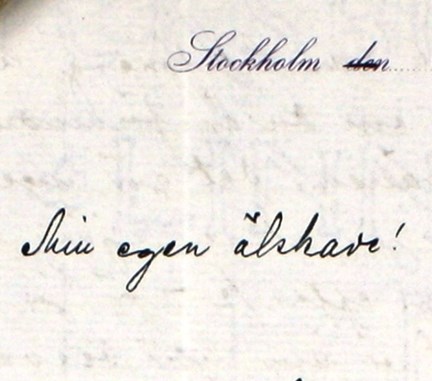 Stockholm den
Min egen älskare!